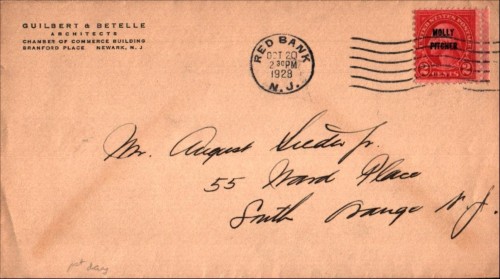 GUILBERT & BETELLE
ARCHITECTS
CHAMBER OF COMMERCE BUILDING
BRANFORD PLACE NEWARK, N. J.
RED BANK
OCT 20
2 30 PM
1928
N. J.
MOLLY
PITCHER
2 CENTS 2
Mr. August
55 Ward Place
South Orange N. J.